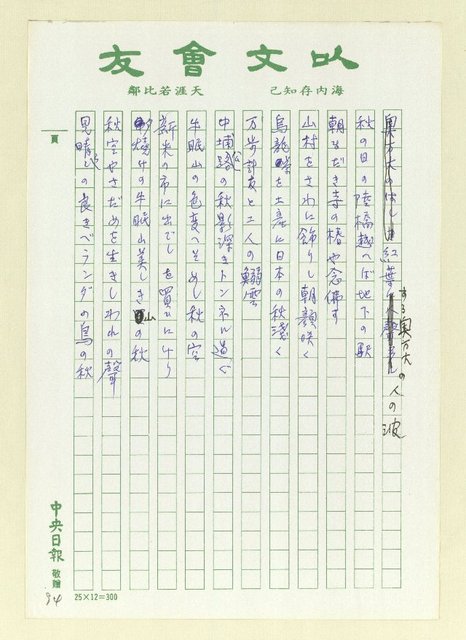 以文會友
海内存知己　天涯若比鄰
紅葉する奥万大の人の波
秋の日の陸橋越へば地下の駅
朝まだき寺の椿や念佛す
山村をさわに飾りし朝顔咲く
烏龍を土産に日本の秋淺く
万歩計友と二人の鰯雲
中埔路の秋影深きトンネル過ぐ
牛眠山の色変へそめし秋の空
新米の市に出でしを買ひにけり
夕燒けの牛眠山美しき山の秋
秋空やさだめを生きしわれの聲
見晴らしの良きベランダの鳥の秋
頁
中央日報 敬贈
94
25×12=300